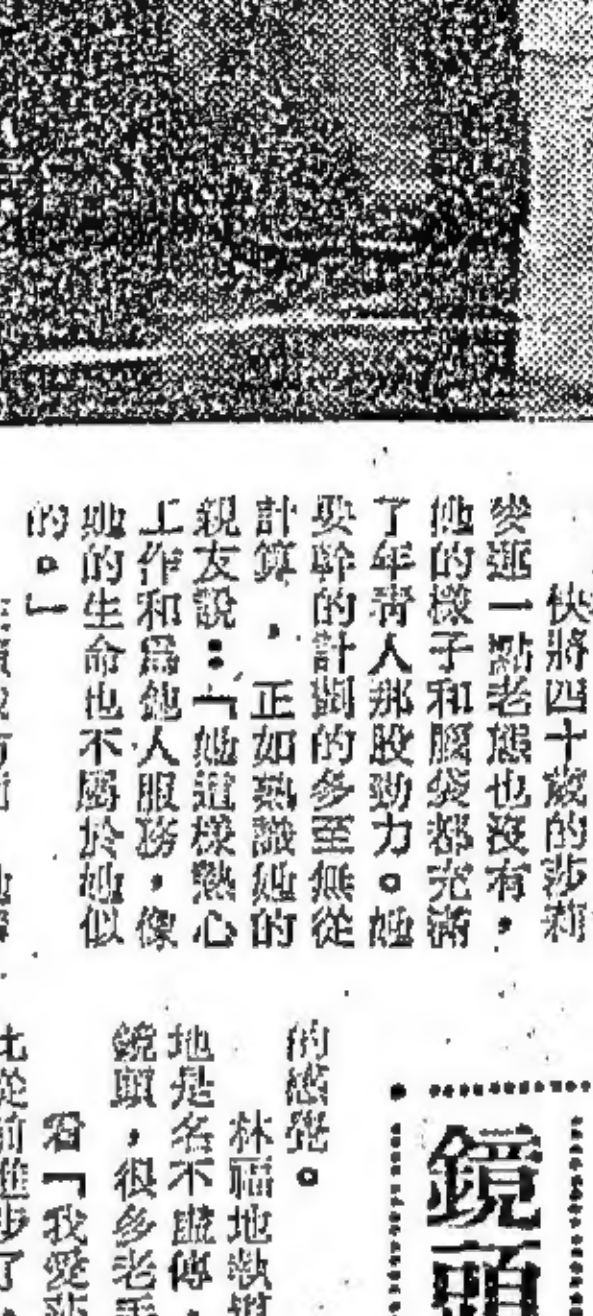 快將四十歲的莎莉
麥蓮一點老態也沒有，
他的樣子和腦袋都充滿
了年靑人那股勁力。她
要幹的計劃的多至無從
計算，正如熟識她的
親友說：「她這樣熱心
工作和爲他人服務，像
她的生命也不屬於她似
的。」
鏡頭
的感覺。
林福地執導
地是名不虛傳，
鏡頭，很多老手
看「我愛
比從前進步了，